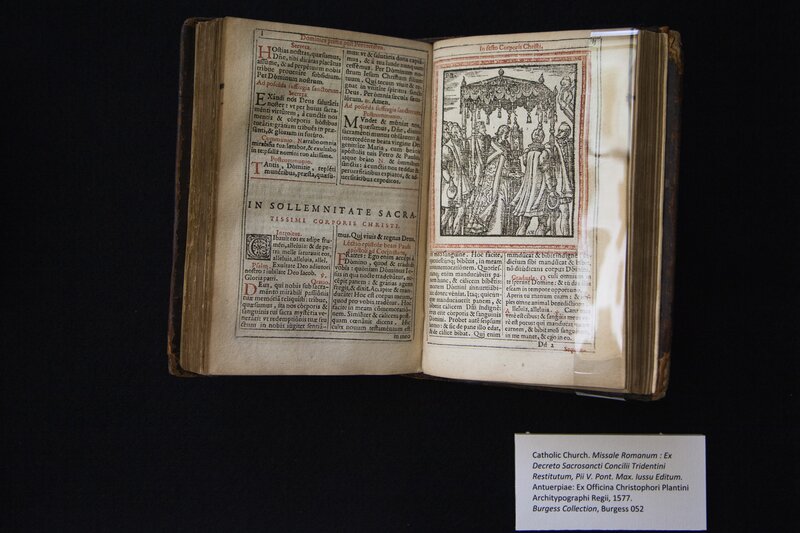 Dominica prima post Pentecosten.
Secreta.
Hostias nostras, quæsumus,
Dñe, tibi dicatas placatus
assume, & ad perpetuum nobis
tribue prouenire subsidium.
Per Dominum nostrum.
Ad poscenda suffragia sanctorum.
Secreta.
Exaudi nos Deus salutaris
noster: vt per huius sacra-
menti virtutem, à cunctis nos
mentis & corporis hostibus
tuearis: gratiam tribuēs in præ-
senti, & gloriam in futuro.
Communio. Narrabo omnia
mirabilia tua: lætabor, & exultabo
in te: psallā nomini tuo altissime.
Postcommunio.
Tantis, Domine, repleti
muneribus, præsta, quæsu-
mus, & à tua nunquam laude
cessemus. Per Dominum nos-
trum Iesum Christum filium
tuum. Qui tecum viuit & re-
gnat in vnitate spiritus sancti
Deus. Per omnia sæcula sæcu-
lorum. ℟. Amen.
Ad poscenda suffragia sanctorum.
Postcommunio.
Mundet & muniat nos,
quæsumus, Dñe, diuini
sacramenti munus oblatum: &
intercedente beata virgine Dei
genitrice Maria, cum beatis
apostolis tuis Petro & Paulo,
atque beato N. & omnibus
sanctis, à cunctis nos reddat &
peruersitatibus expiatos, & ad-
uersitatibus expeditos.
IN SOLLEMNITATE SACRA-
TISSIMI CORPORIS CHRISTI.
Introitus.
Cibauit eos ex adipe fru-
menti, alleluia: & de pe-
tra melle saturauit eos,
alleluia, alleluia, allel.
Psalm. Exultate Deo adiutori
nostro: iubilate Deo Iacob. ℣.
Gloria patri.
Oratio.
Deus, qui nobis sub sacra-
mento mirabili passionis
tuæ memoriā reliquisti: tribue,
quæsumus, ita nos corporis &
sanguinis tui sacra mysteria ve-
nerari: vt redemptionis tuæ fru-
ctum in nobis iugiter sentia-
mus. Qui viuis & regnas Deus.
Lectio epistolæ beati Pauli
apostoli ad Corinthios.
Fratres: Ego enim accepi à
Domino, quod & tradidi
vobis: quoniam Dominus Ie-
sus in qua nocte tradebatur, ac-
cepit panem: & gratias agens
fregit, & dixit. Accipite & man-
ducate: Hoc est corpus meum,
quod pro vobis tradetur. Hoc
facite in meam cōmemoratio-
nem. Similiter & calicem post-
quam cœnauit dicens. Hic
calix nouum testamentum est
in meo
In festo Corporis Christi.
in meo sanguine. Hoc facite,
quotiescunq; bibetis, in meam
commemorationem. Quoties-
cunq; enim manducabitis pa-
nem hunc, & calicem bibetis:
mortem Domini annuntiabi-
tis donec veniat. Itaq; quicun-
que manducauerit panem, vel
biberit calicem Dñi indignè:
reus erit corporis & sanguinis
Domini. Probet autē seipsum
homo: & sic de pane illo edat,
& de calice bibat. Qui enim
manducat & bibit indignè: iu-
dicium sibi manducat & bibit:
nō diiudicans corpus Domini.
Graduale. Oculi omnium in
te sperant Domine: & tu das
escam in tempore opportuno. ℣.
Aperis tu manum tuam: & im-
ples omne animal benedictione.
Alleluia, alleluia. ℣. Caro mea
verè est cibus: & sanguis meus verè
est potus: qui manducat meam
carnem, & bibit meū sanguinem,
in me manet, & ego in eo.
Dd 2
Catholic Church. Missale Romanum : Ex
Decreto Sacrosancti Concilii Tridentini
Restitutum, Pii V. Pont. Max. Iussu Editum.
Antuerpiae: Ex Officina Christophori Plantini
Architypographi Regii, 1577.
Burgess Collection, Burgess 052